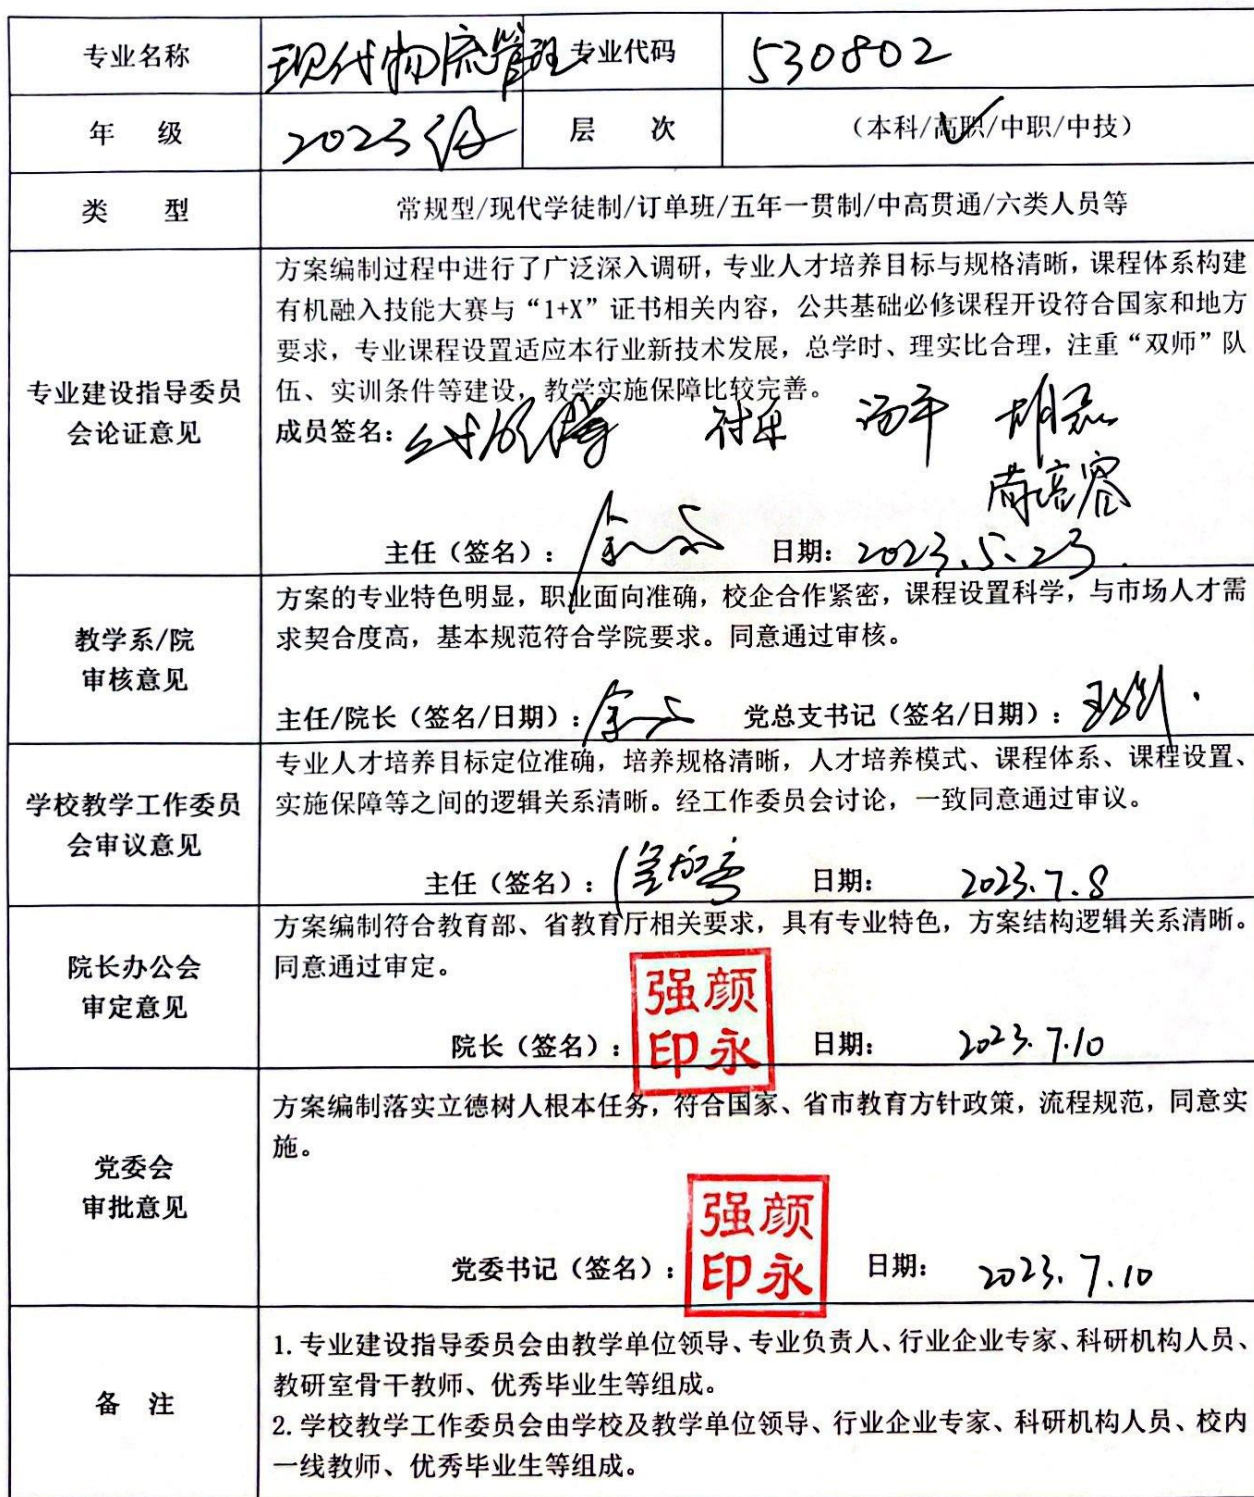 专业名称 现代物流管理 专业代码 530802
年 级 2023级 层 次 (本科/高职/中职/中技)
类 型 常规型/现代学徒制/订单班/五年一贯制/中高贯通/六类人员等
专业建设指导委员
会论证意见
方案编制过程中进行了广泛深入调研，专业人才培养目标与规格清晰，课程体系构建
有机融入技能大赛与“1+X”证书相关内容，公共基础必修课程开设符合国家和地方
要求，专业课程设置适应本行业新技术发展，总学时、理实比合理，注重“双师”队
伍、实训条件等建设，教学实施保障比较完善。
成员签名：
主任（签名）： 日期：2023.5.23.
教学系/院
审核意见
方案的专业特色明显，职业面向准确，校企合作紧密，课程设置科学，与市场人才需
求契合度高，基本规范符合学院要求。同意通过审核。
主任/院长（签名/日期）： 党总支书记（签名/日期）：
学校教学工作委员
会审议意见
专业人才培养目标定位准确，培养规格清晰，人才培养模式、课程体系、课程设置、
实施保障等之间的逻辑关系清晰。经工作委员会讨论，一致同意通过审议。
主任（签名）： 日期： 2023.7.8
院长办公会
审定意见
方案编制符合教育部、省教育厅相关要求，具有专业特色，方案结构逻辑关系清晰。
同意通过审定。
院长（签名）： 颜永强印 日期： 2023.7.10
党委会
审批意见
方案编制落实立德树人根本任务，符合国家、省市教育方针政策，流程规范，同意实
施。
党委书记（签名）： 颜永强印 日期： 2023.7.10
备 注
1.专业建设指导委员会由教学单位领导、专业负责人、行业企业专家、科研机构人员、
教研室骨干教师、优秀毕业生等组成。
2.学校教学工作委员会由学校及教学单位领导、行业企业专家、科研机构人员、校内
一线教师、优秀毕业生等组成。